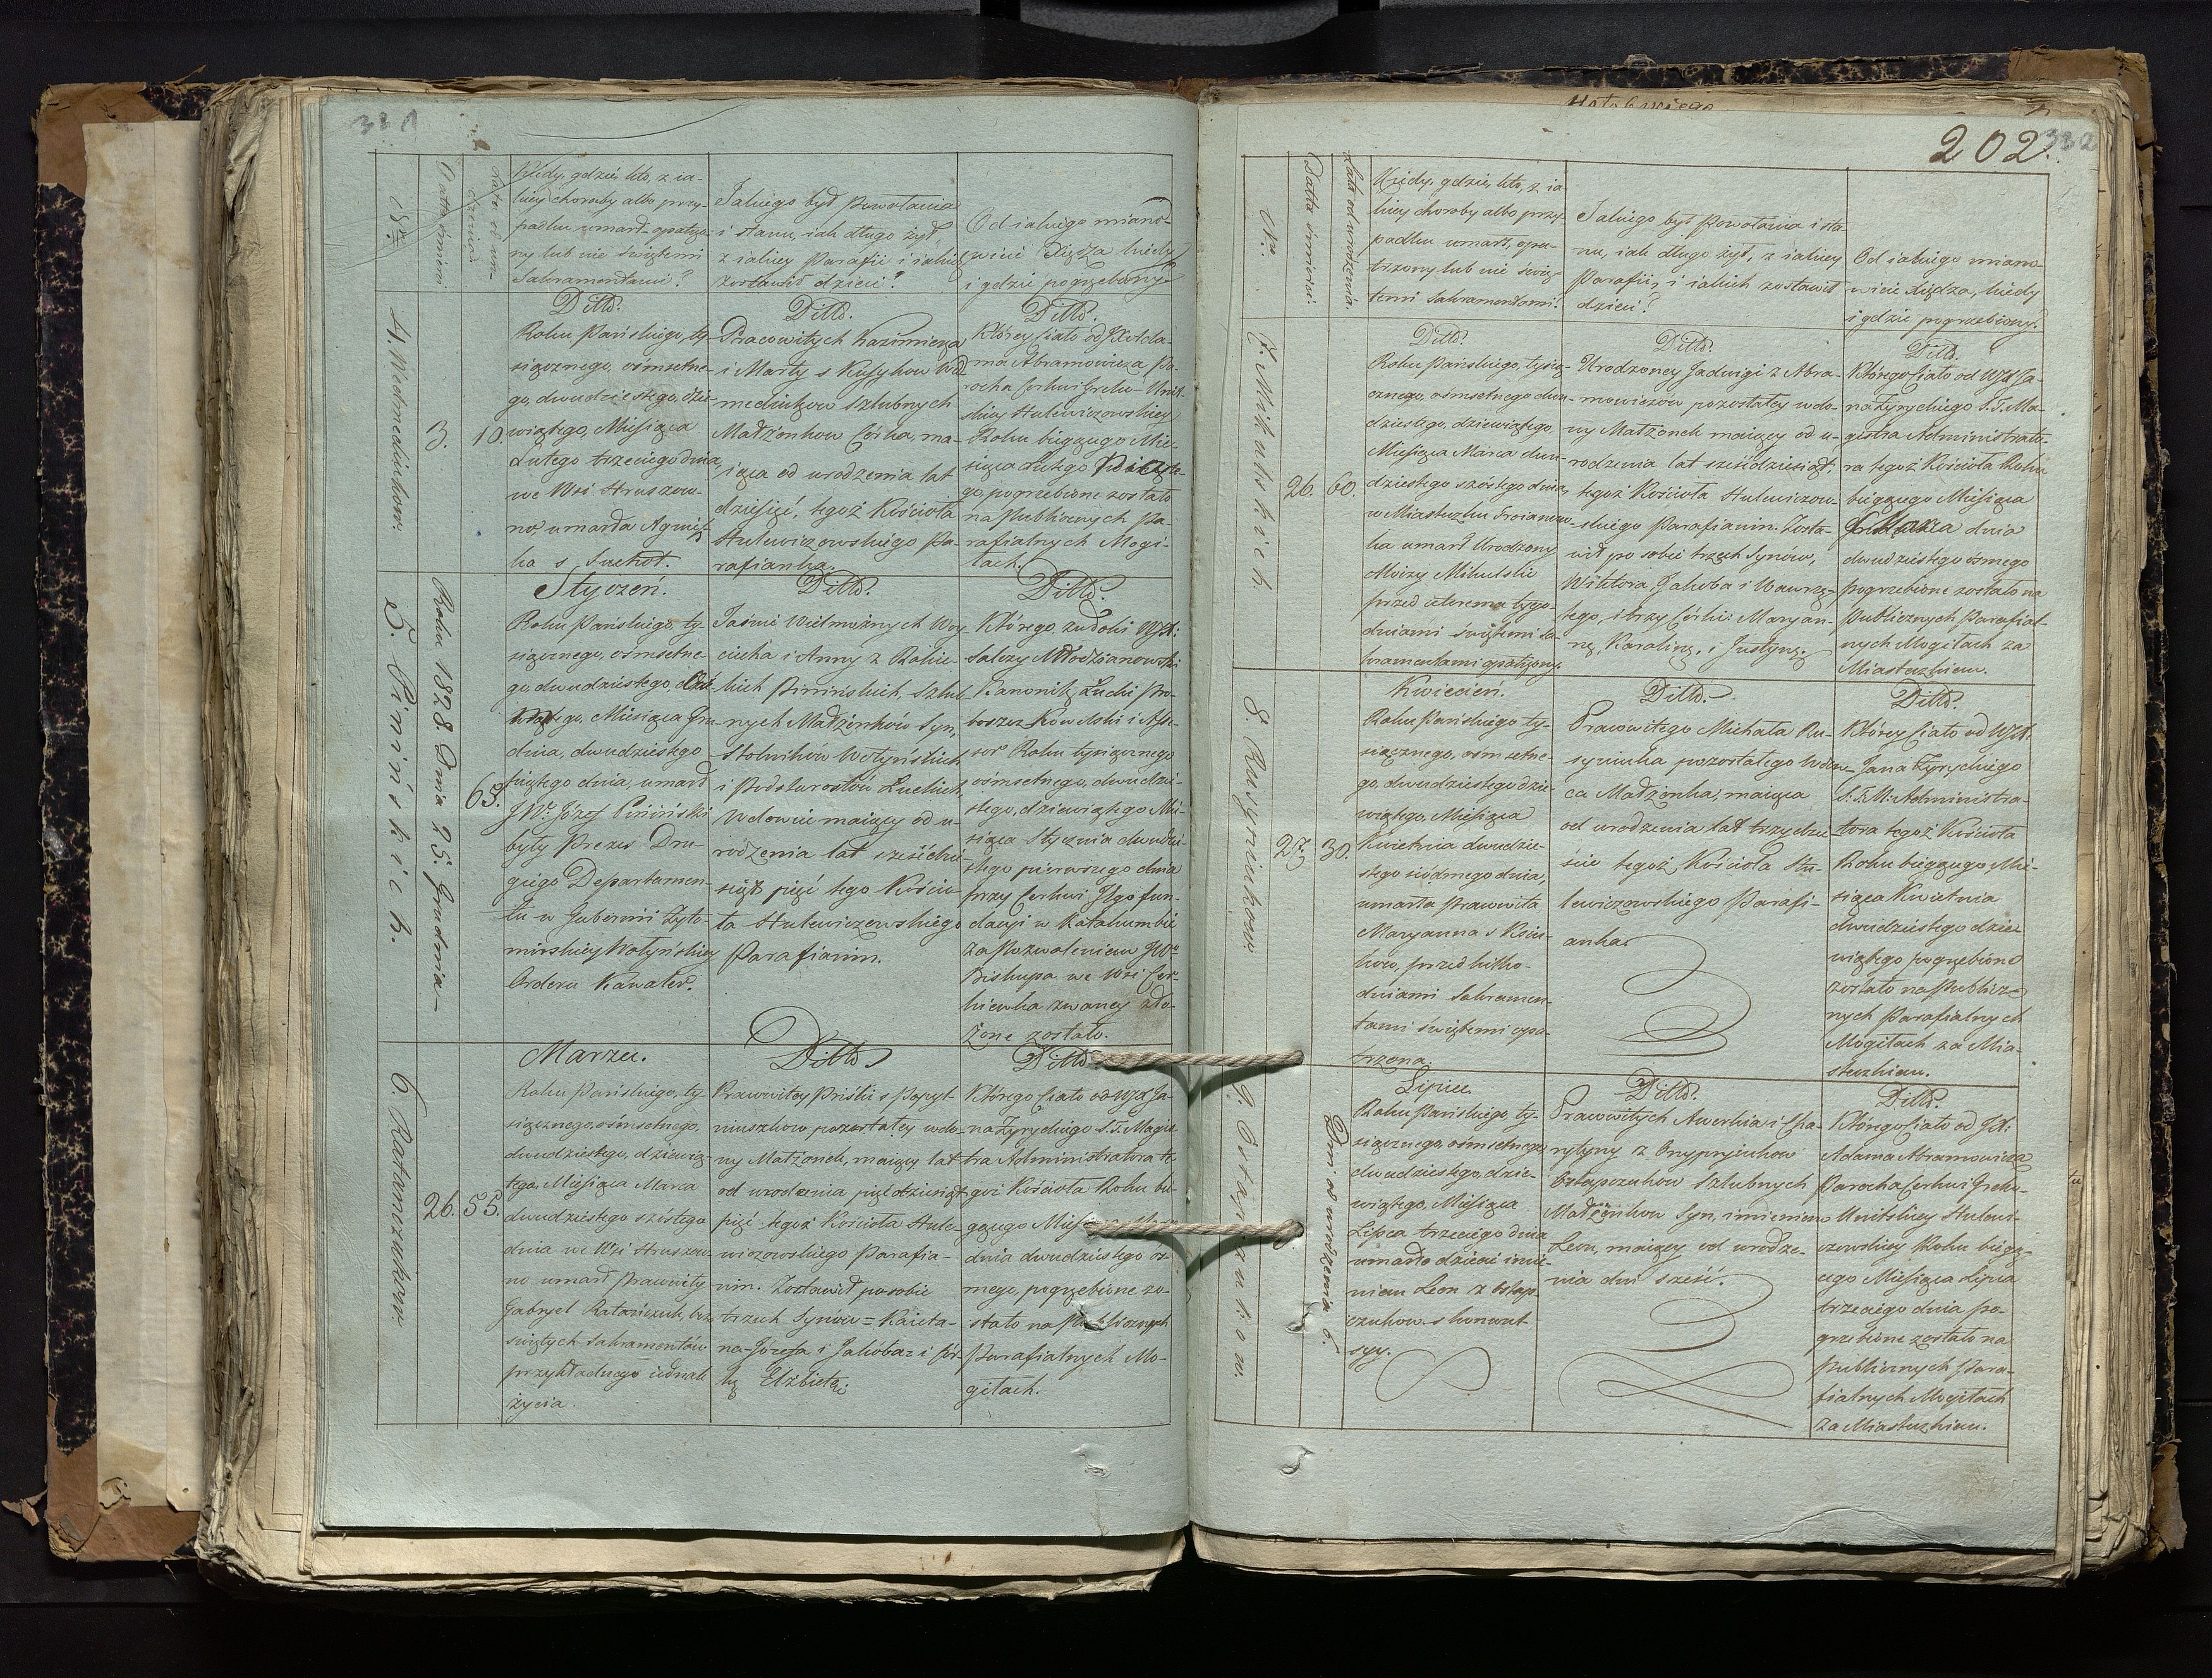 331
Nr.
Datta śmierci
Lata od urodzenia
Kiedy, gdzie, kto, z ia-
kiey choroby albo przy-
padku umarł opatrzo-
ny lub nie Świętemi
Sakramentami?
Jakiego był Powołania
i stanu, iak długo żył,
z iakiey Parafii i iakich
zostawił dzieci?
Od iakiego miano-
wicie Xiędza kiedy
i gdzie pogrzebiony?
4. Wedmediukow.
3.
10.
Ditto.
Roku Pańskiego, ty-
siącznego, ośmsetne-
go, dwudziestego, dzie-
wiątego, Miesiąca
Lutego trzeciego dnia,
we Wsi Hruszow-
no, umarła Agniesz-
ka s Suchot.
Ditto.
Pracowitych Kazimierza
i Marty s Kusykow Wed
mediukow Szlubnych
Małżonkow Córka, ma-
iąca od urodzenia lat
dziesięć, tegoż Kościoła
Hulewiczowskiego Pa-
rafianka.
Ditto.
Którey Ciało od JX Ada-
ma Abramowicza Pa-
rocha Cerkwi Greko-Unit-
skiey Hulewiczowskiey
Roku bieżącego Mie-
siąca Lutego Piąte-
go, pogrzebione zostało
na Publicznych Pa-
rafialnych Mogi-
łach.
5. Pinińskich.
Roku 1828. Dnia 25. Grudnia
65.
Styczeń.
Roku Pańskiego, ty-
siącznego, ośmsetne-
go, dwudziestego,
Miesiąca Gru-
dnia, dwudziestego
piątego dnia, umarł
JWr. Józef Piniński
były Prezes Dru-
giego Departamen-
tu w Gubernii Żyto-
mirskiey Wołyńskiey
Orderu Kawaler.
Ditto.
Jaśnie Wielmożnych Woy-
ciecha i Anny z Rokic-
kich Pinińskich, Szlub-
nych Małżonków Syn,
Stolników Wołyńskich
i Podstarostów Łuckich,
Wdowiec maiący od u-
rodzenia lat sześćdzie-
siąt pięć tego Kościo-
ła Hulewiczowskiego
Parafianin.
Ditto.
Którego zwłoki WJX:
Salezy Młodzianowski
Kanonik Łucki Pro-
boszcz Kowelski i Asse-
sor Roku tysiącznego
ośmsetnego, dwudzie-
stego, dziewiątego Mie-
siąca Stycznia dwudzie-
stego pierwszego dnia
przy Cerkwi Jłgo fun-
dacyi w Katakumbie
za Pozwoleniem JWo
Biskupa we Wsi Cer-
kiewka zwaney zło-
żone zostało.
6. Ratanczukow.
26.
55.
Marzec.
Roku Pańskiego, ty-
siącznego, ośmsetnego,
dwudziestego, dziewią-
tego, Miesiąca Marca
dwudziestego szóstego
dnia we Wsi Hruszow-
no umarł Pracowity
Gabryel Ratańczuk, bez
świętych Sakramentów
przykładnego iednak
życia.
Ditto
Pracowitey Priśki s Popył-
niuszkow pozostałey wdo-
wy Małżonek, maiący lat
od urodzenia pięćdziesiąt
pięć tegoż Kościoła Hule-
wiczowskiego Parafia-
nin. Zostawił po sobie
trzech Synów = Kaieta-
na-Józefa i Jakóba = i Cór-
kę Elżbietę.
Ditto
Którego Ciało od WJX Ja-
na Żyryckiego S.T. Magis-
tra Administratora te-
goż Kościoła Roku bie-
żącego Miesiąca
dnia dwudziestego ós-
mego, pogrzebione zo-
stało na Publicznych
Parafialnych Mo-
giłach.
202.
332
Nr.
Datta śmierci
Lata od urodzenia.
Kiedy, gdzie, kto, z ia-
kiey choroby albo przy-
padku umarł, opa-
trzony lub nie świę-
temi Sakramentami?
Jakiego był Powołania i sta-
nu, iak długo żył, z iakiey
Parafii, i iakich zostawił
dzieci?
Od iakiego miano-
wicie Xiędza, kiedy
i gdzie pogrzebiony?
7. Mikulskich.
26.
60.
Ditto.
Roku Pańskiego, tysią-
cznego, ośmsetnego dwu-
dziestego, dziewiątego,
Miesiąca Marca dwu-
dziestego szóstego dnia,
w Miasteczku Troianow-
ka umarł Urodzony
Moizy Mikulski
przed czterema tygo-
dniami świętemi Sa-
kramentami opatrzony.
Ditto.
Urodzoney Jadwigi z Abra-
mowiczów pozostałey wdo-
wy Małżonek maiący od u-
rodzenia lat sześćdziesiąt,
tegoż Kościoła Hulewiczow-
skiego Parafianin. Zosta-
wił po sobie trzech Synów,
Wiktora, Jakoba i Wawrzę-
tego, i trzy Córki: Maryan-
nę, Karolinę, i Justynę.
Ditto.
Którego Ciało od WJX Ja-
na Żyryckiego S.T. Ma-
gistra Administrato-
ra tegoż Kościoła Roku
bieżącego Miesiąca
Marca dnia
dwudziestego ósmego
pogrzebione zostało na
Publicznych Parafial-
nych Mogiłach za
Miasteczkiem.
8. Rusyniukow
27.
30.
Kwiecień.
Roku Pańskiego ty-
siącznego, ośmsetne-
go, dwudziestego dzie-
wiątego, Miesiąca
Kwietnia dwudzie-
stego siódmego dnia,
umarła Pracowita
Maryanna s Kos-
kow, przed kilko-
dniami Sakramen-
tami świętemi opa-
trzona.
Ditto.
Pracowitego Michała Ru-
syniuka pozostałego Wdow-
ca Małżonka, maiąca
od urodzenia lat trzydzie-
ście tegoż Kościoła Hu-
lewiczowskiego Parafi-
anka.
Ditto.
Którey Ciało od WJX.
Jana Żyryckiego
S.T.M. Administra-
tora tegoż Kościoła
Roku bieżącego Mie-
siąca Kwietnia
dwudziestego dzie-
wiątego pogrzebione
zostało na Publicz-
nych Parafialnych
Mogiłach za Mia-
steczkiem.
9. Ostapczukow.
Dni od urodzenia 6.
Lipiec.
Roku Pańskiego, ty-
siącznego, ośmsetnego,
dwudziestego, dzie-
wiątego, Miesiąca
Lipca trzeciego dnia
umarło dziecie imie-
niem Leon z Ostap-
czukow s konwul-
syy.
Ditto.
Pracowitych Awerkia i Cha-
rytyny z Onypryiukow
Ostapczukow Szlubnych
Małżonkow Syn, imieniem
Leon, maiący od urodze-
nia dni sześć.
Ditto.
Którego Ciało od JX:
Adama Abramowicza
Parocha Cerkwi Greko-
Unitskiey Hulewi-
czowskiey Roku bieżą-
cego Miesiąca Lipca
trzeciego dnia po-
grzebione zostało na
Publicznych Para-
fialnych Mogiłach
za Miasteczkiem.